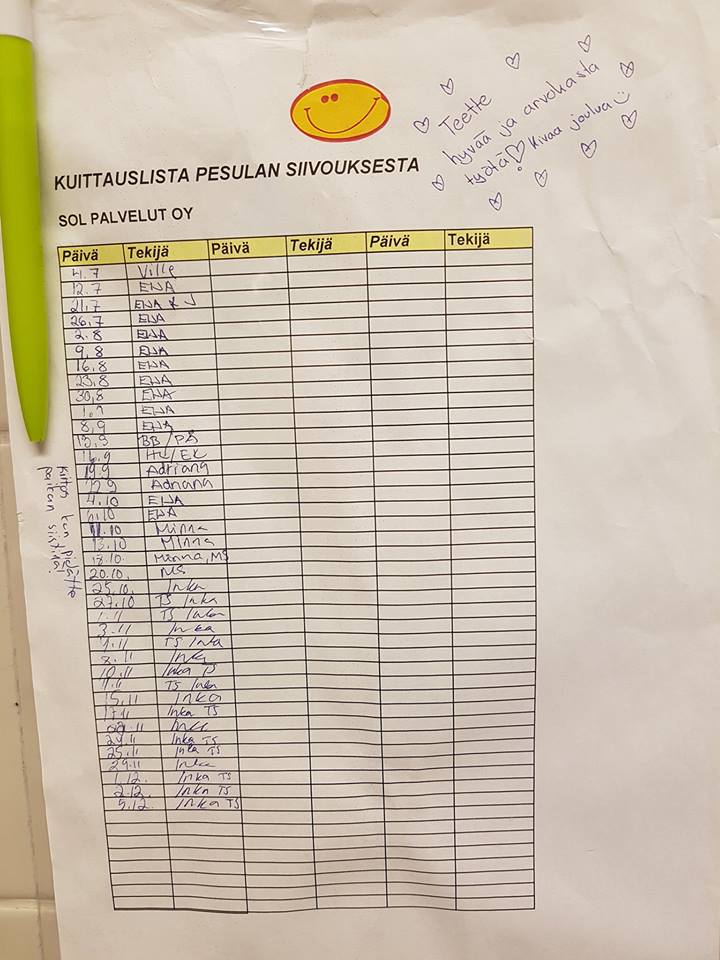 Teette
hyvää ja arvokasta
työtä! Kivaa joulua
KUITTAUSLISTA PESULAN SIIVOUKSESTA
SOL PALVELUT OY
Päivä Tekijä Päivä Tekijä Päivä Tekijä
4.7 Ville
12.7 EWA
21.7 EWA & J
26.7 EWA
2.8 EWA
9.8 EWA
16.8 EWA
23.8 EWA
30.8 EWA
1.9 EWA
8.9 EWA
13.9 BB/PS
HU/EK
19.9 Adriana
Adriana
4.10 EWA
EWA
11.10 Minna
13.10 Minna
18.10 Minna, MS
20.10. MS
25.10. Inka
27.10 TS Inka
1.11 TS Inka
3.11 Inka
TS Inka
Inka
10.11 Inka TS
TS Inka
15.11 Inka
17.11 Inka TS
Inka
24.11 Inka TS
25.11 Inka TS
29.11 Inka
1.12. Inka TS
2.12. Inka TS
5.12. Inka TS
Kiitos kun pidätte
paikan siistinä!